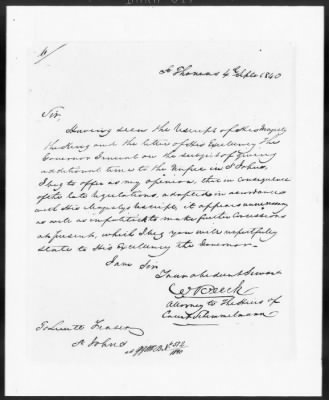 St Thomas 4th Septr 1840
Sir,
Having seen the Rescript of His Majesty
the King and the letter of His Excellency the
Governor General on the subject of giving
additional time to the Negroes in St Johns,
I beg to offer as my opinion, that in consequence
of the late regulations, adopted in accordance
with His Majesty's Rescript, it appears unnecessary
as well as impolitic to make further Concessions
at present, which I beg you will respectfully
state to His Excellency the Governor
I am Sir
Your obedient Servant
Attorney to the Heirs of
Count Schimmelmann
To Lieutt Frasers
St Johns